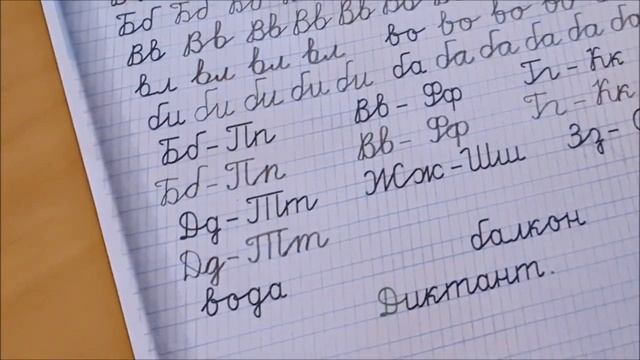 Бб Бб Вв
Вв Вв Вв Вв Вв Вв
вл вл вл вл во во во во
би би би би би ба ба ба ба ба
Бб - Пп Вв - Фф Гг - Кк
Бб - Пп Вв - Фф Гг - Кк
Дд - Тт Жж - Шш Зз -
Дд - Тт
вода балкон
Диктант.